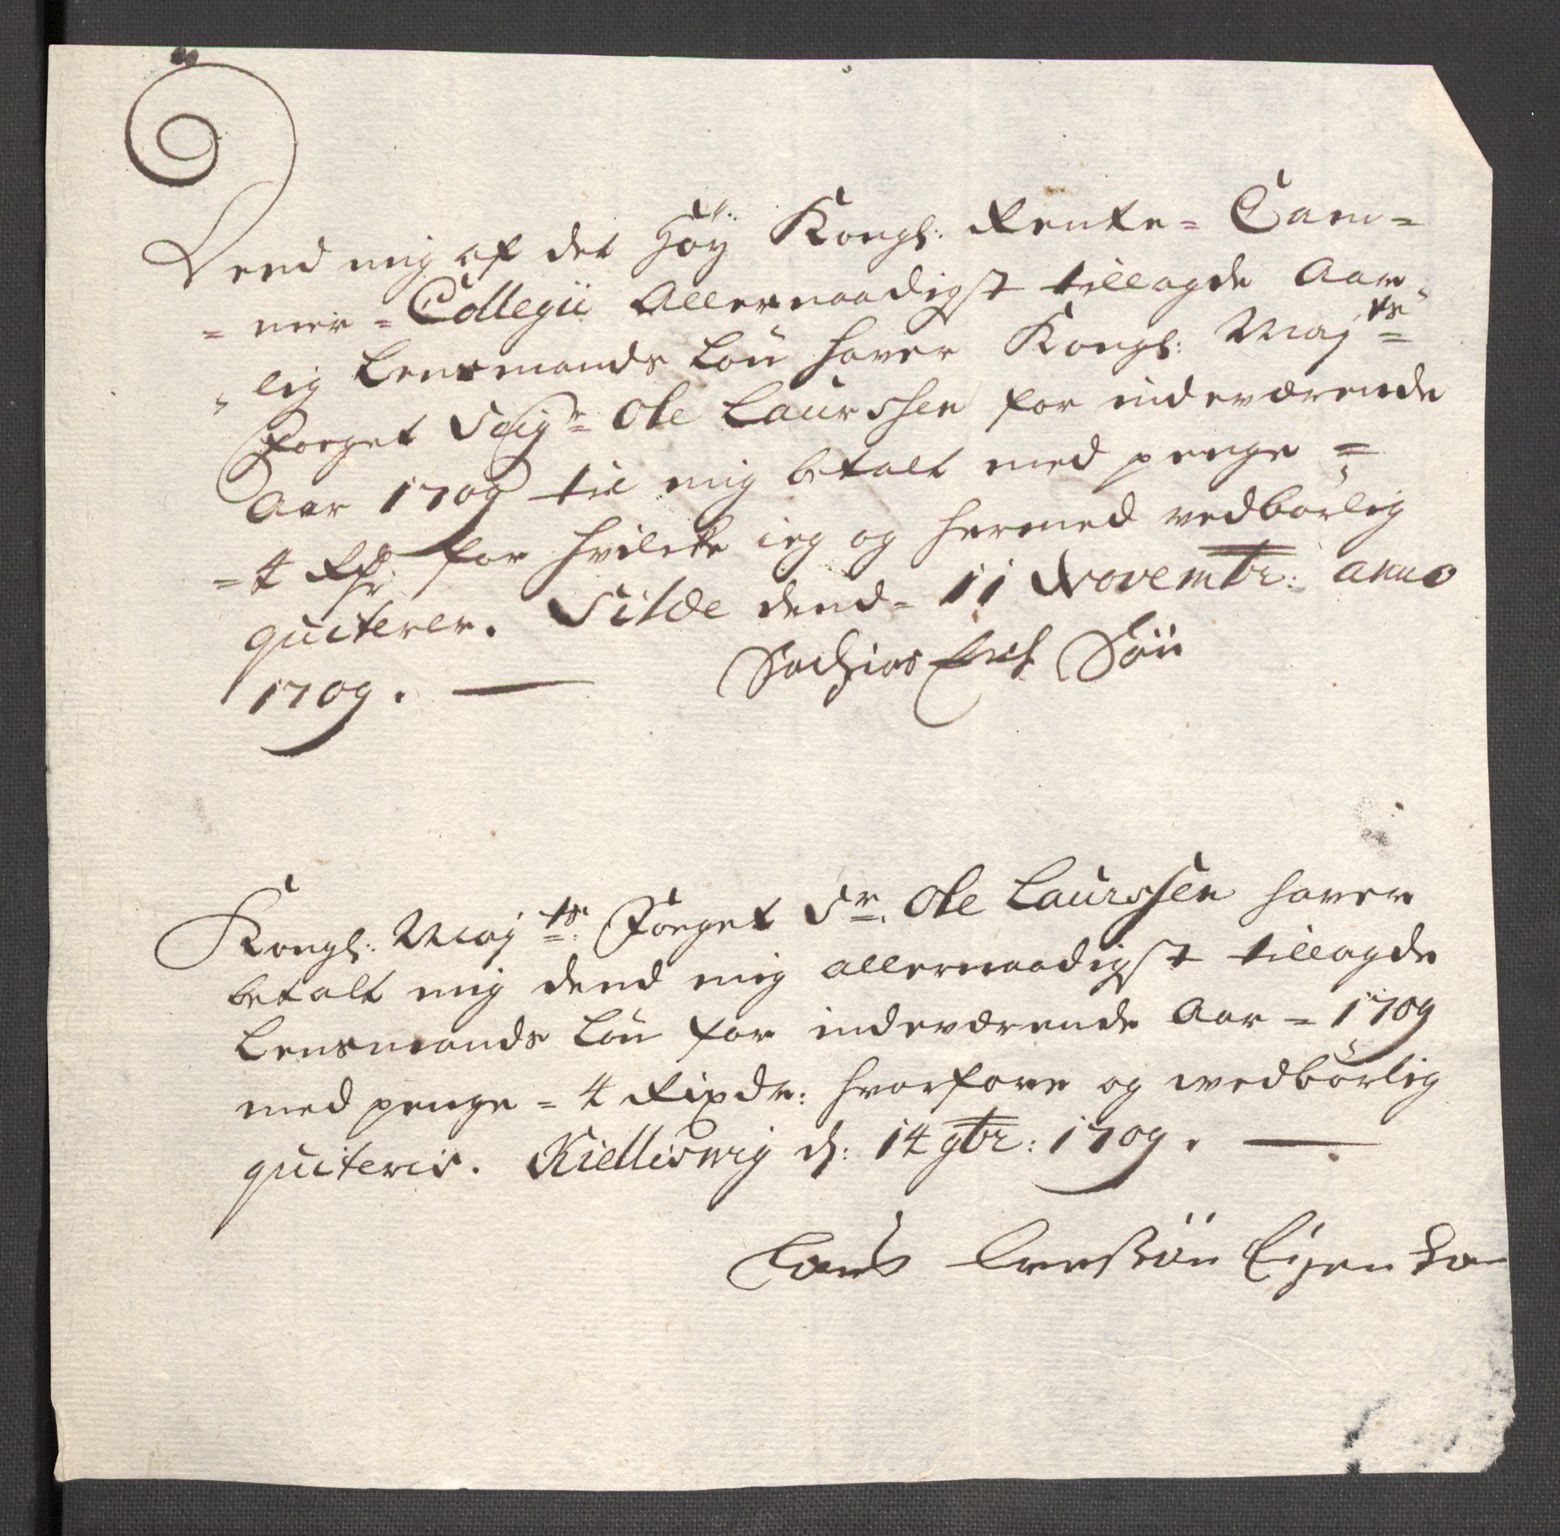 Dend mig af det Høÿ Kongl: Rente= Cam=
= mer = Collegii Allernaadigst tillagde Aar-
lig Lensmands Løn haver Kongl: Maj.ts=
Foeget Seigr Ole Laurssen for indeværende
Aar 1709 til mig betalt med penge =
= 4 Rdr for hvilcke ieg og hermed vedbørlig
quiterer. Silde dend= 11 Novembr: anno
1709.
Søn
Kongl: Majts Foeget Sr. Ole Laurssen haver
betalt mig dend mig allernaadigst tillagde
Lensmands Løn for indeværende Aar = 1709
med penge = 4 Rixdr: hvorfore og wedbørlig
quiteris. Kielliswig d: 14 9br: 1709.
Lars Eigen